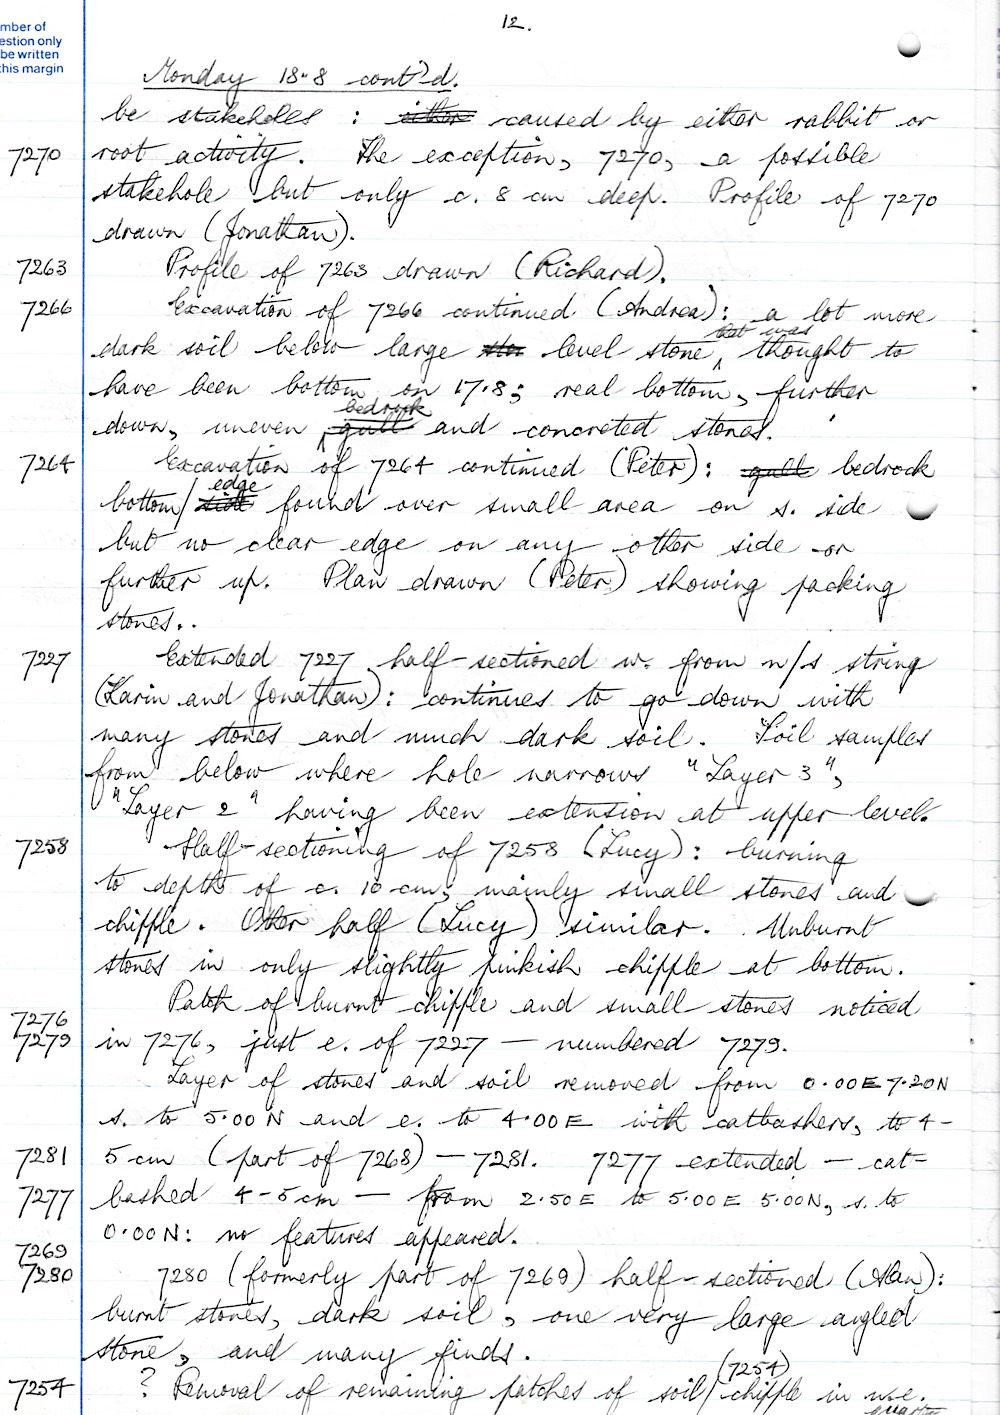 12.
mber of
estion only
be written
this margin
Monday 18.8 cont'd.
be stakeholes : either caused by either rabbit or
7270 root activity. The exception, 7270, a possible
stakehole but only c. 8 cm deep. Profile of 7270
drawn (Jonathan).
7263 Profile of 7263 drawn (Richard).
7266 Excavation of 7266 continued (Andrea): a lot more
dark soil below large level stone, that was thought to
have been bottom on 17.8; real bottom, further
down, uneven gull bedrock and concreted stones.
7264 Excavation of 7264 continued (Peter): gull bedrock
bottom/side edge found over small area on s. side
but no clear edge on any other side or
further up. Plan drawn (Peter) showing packing
stones..
7227 Extended 7227 half-sectioned w. from n/s string
(Karin and Jonathan): continues to go down with
many stones and much dark soil. Soil samples
from below where hole narrows "Layer 3",
"Layer 2" having been extension at upper level.
7258 Half-sectioning of 7258 (Lucy): burning
to depth of c. 10 cm; mainly small stones and
chipple. Other half (Lucy) similar. Unburnt
stones in only slightly pinkish chipple at bottom.
Patch of burnt chipple and small stones noticed
7276
7279 in 7276, just e. of 7227 — numbered 7279.
Layer of stones and soil removed from 0.00E 7.20N
s. to 5.00N and e. to 4.00E with catbashers, to 4-
7281 5 cm (part of 7268) — 7281. 7277 extended — cat-
7277 bashed 4-5cm — from 2.50E to 5.00E 5.00N, s. to
0.00N: no features appeared.
7269
7280 7280 (formerly part of 7269) half-sectioned (Alan):
burnt stones, dark soil, one very large angled
stone, and many finds.
7254 ? Removal of remaining patches of soil/(7254) chipple in n.e.
quarter